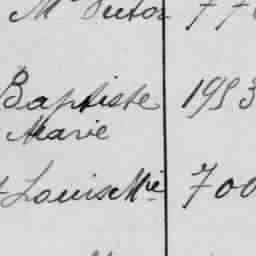 Mie Victor 77
Baptiste 1953
Marie
Louis Mie 700